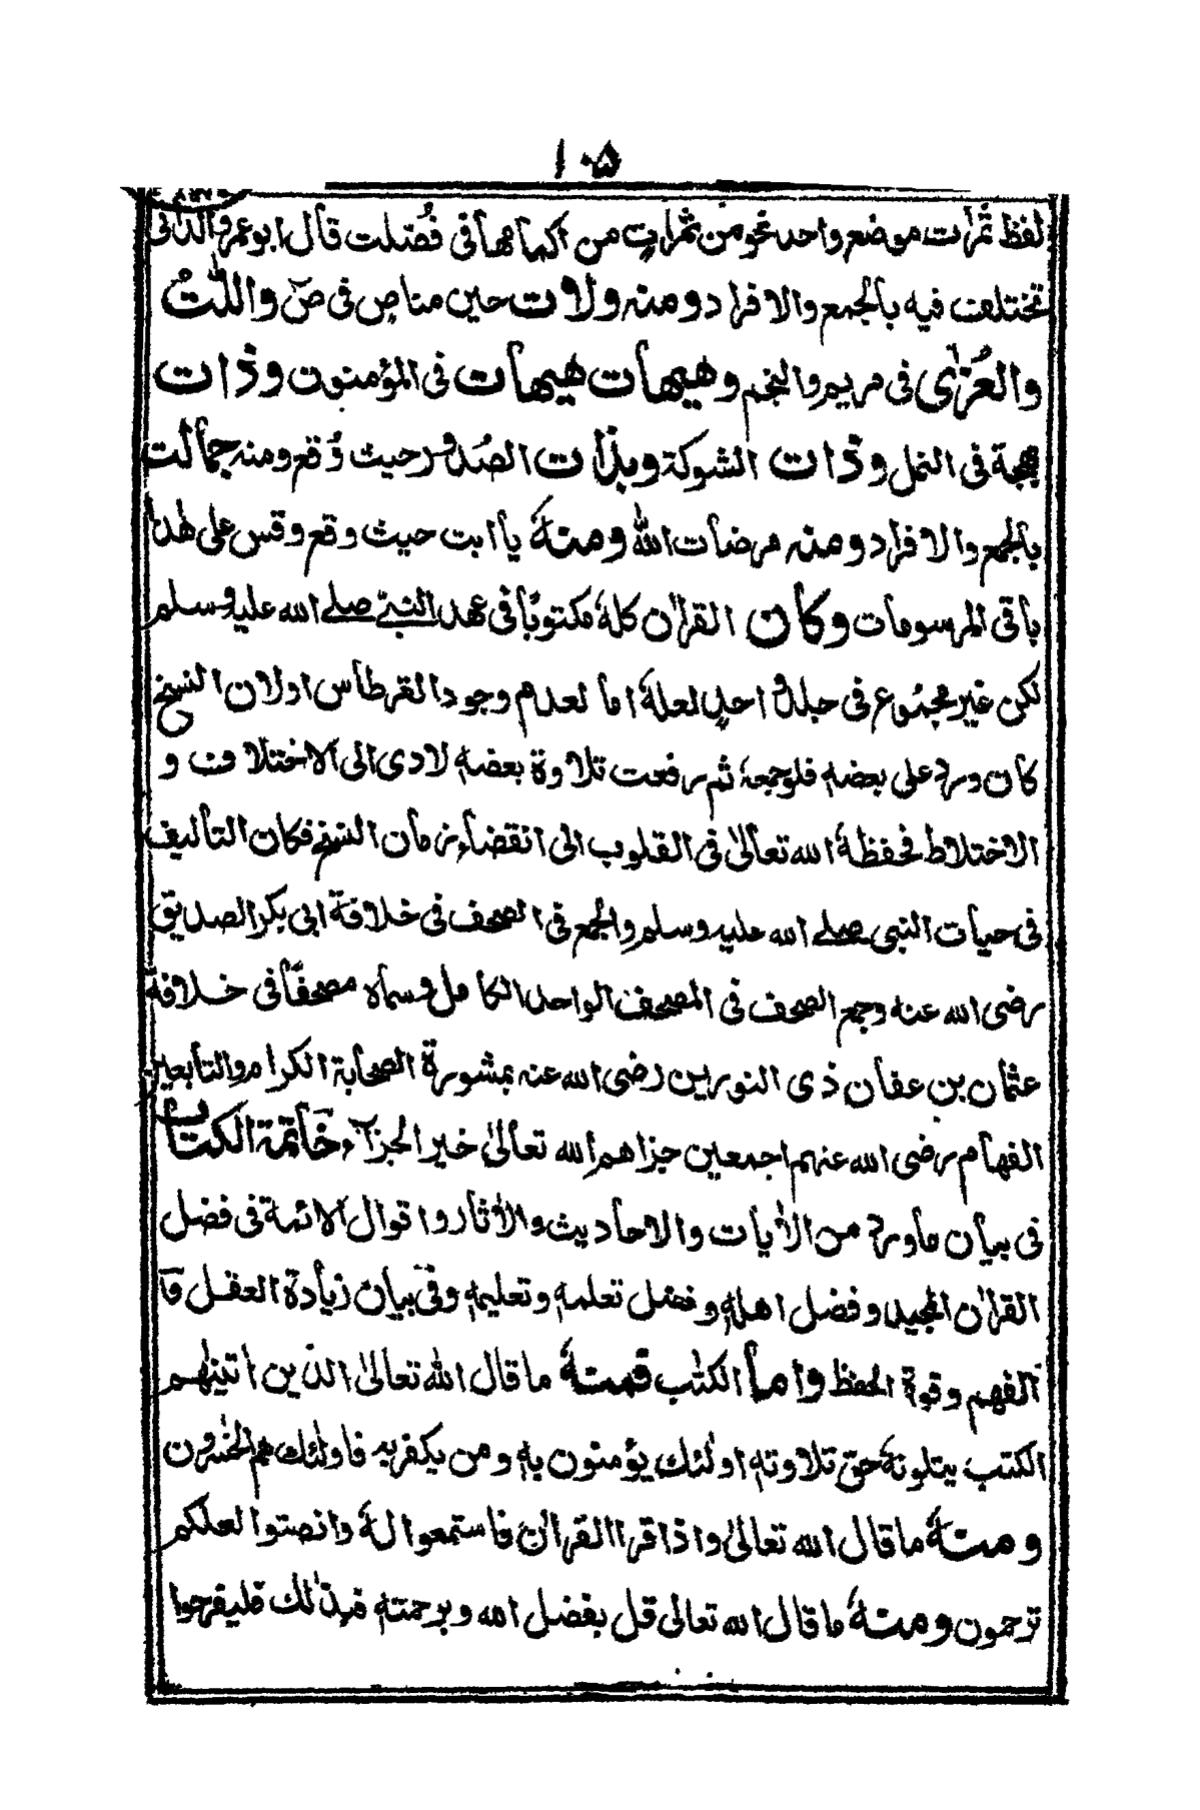 ١٠٥
لفظ ثمرات موضع واحد نحو من ثمرات من اكمامها فى فصلت قال ابوعمرو الدانى
تختلف فيه بالجمع والافراد ومنه ولات حين مناص فى صٓ واللّٰت
والعُزّٰى فى مريم والنجم وهيهات هيهات فى المؤمنون وذات
بهجة فى النمل وذات الشوكة وبذات الصُدور حيث وُقع ومنه جمالت
بالجمع والافراد ومنه مرضات الله ومنهٗ يا ابت حيث وقع وقس على هٰذا
باقى المرسومات وكان القراٰن كلهٗ مكتوبًا فى عهد النبىّ صلے الله عليه وسلم
لكن غير مجتموع فى جلد واحدٍ لعلهٗ اما لعدم وجود القرطاس اولان النسخ
كان ورد على بعضهٖ فلو جمعهٗ ثم رفعت تلاوة بعضهٖ لادى الى الاختلاف و
الاختلاط فحفظهٗ الله تعالىٰ فى القلوب الى انقضاء زمان النسخ فكان التأليف
فى حيات النبى صلے الله عليه وسلم والجمع فى الصحف فى خلافة ابى بكر الصديق
رضى الله عنه وجمع الصحف فى المصحف الواحد الكامل وسماه مصحفًا فى خلافة
عثمان بن عفان ذى النورين رضى الله عنه بمشورة الصحابة الكرام والتابعين
الفهام رضى الله عنهم اجمعين جزاهم الله تعالىٰ خير الجزآء خاتمة الكتاب
فى بيان ماورد من الاٰيات والاحاديث والاٰثار واقوال الائمة فى فضل
القراٰن المجيد وفضل اهلهٖ وفضل تعلمهٖ وتعليمهٖ وفى بيان زيادة العقل و
الفهم وقوة الحفظ واما الكتٰب فمنهٗ ما قال الله تعالىٰ الذين اٰتينٰهم
الكتٰب يتلونهٗ حق تلاوتهٖ اولٰئك يؤمنون بهٖ ومن يكفر به فاولٰئك هم الخٰسرون
ومنهٗ ما قال الله تعالىٰ واذا قرا القراٰن فاستمعوا لهٗ وانصتوا لعلكم
ترحمون ومنهٗ ما قال الله تعالى قل بفضل الله وبرحمتهٖ فبذٰلك فليفرحوا